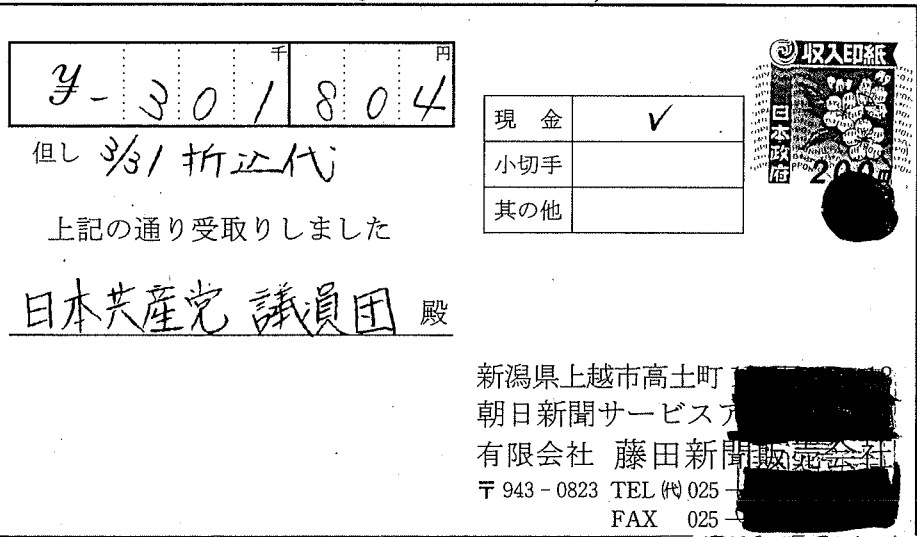 千 円
¥- 301 804
但し 3/31 折込代
上記の通り受取りしました
日本共産党 議員団 殿
現金 ✓
小切手
其の他
収入印紙
日本政府
200円
新潟県上越市高土町
朝日新聞サービスア
有限会社 藤田新聞販売会社
〒943-0823 TEL(代)025-
FAX 025-